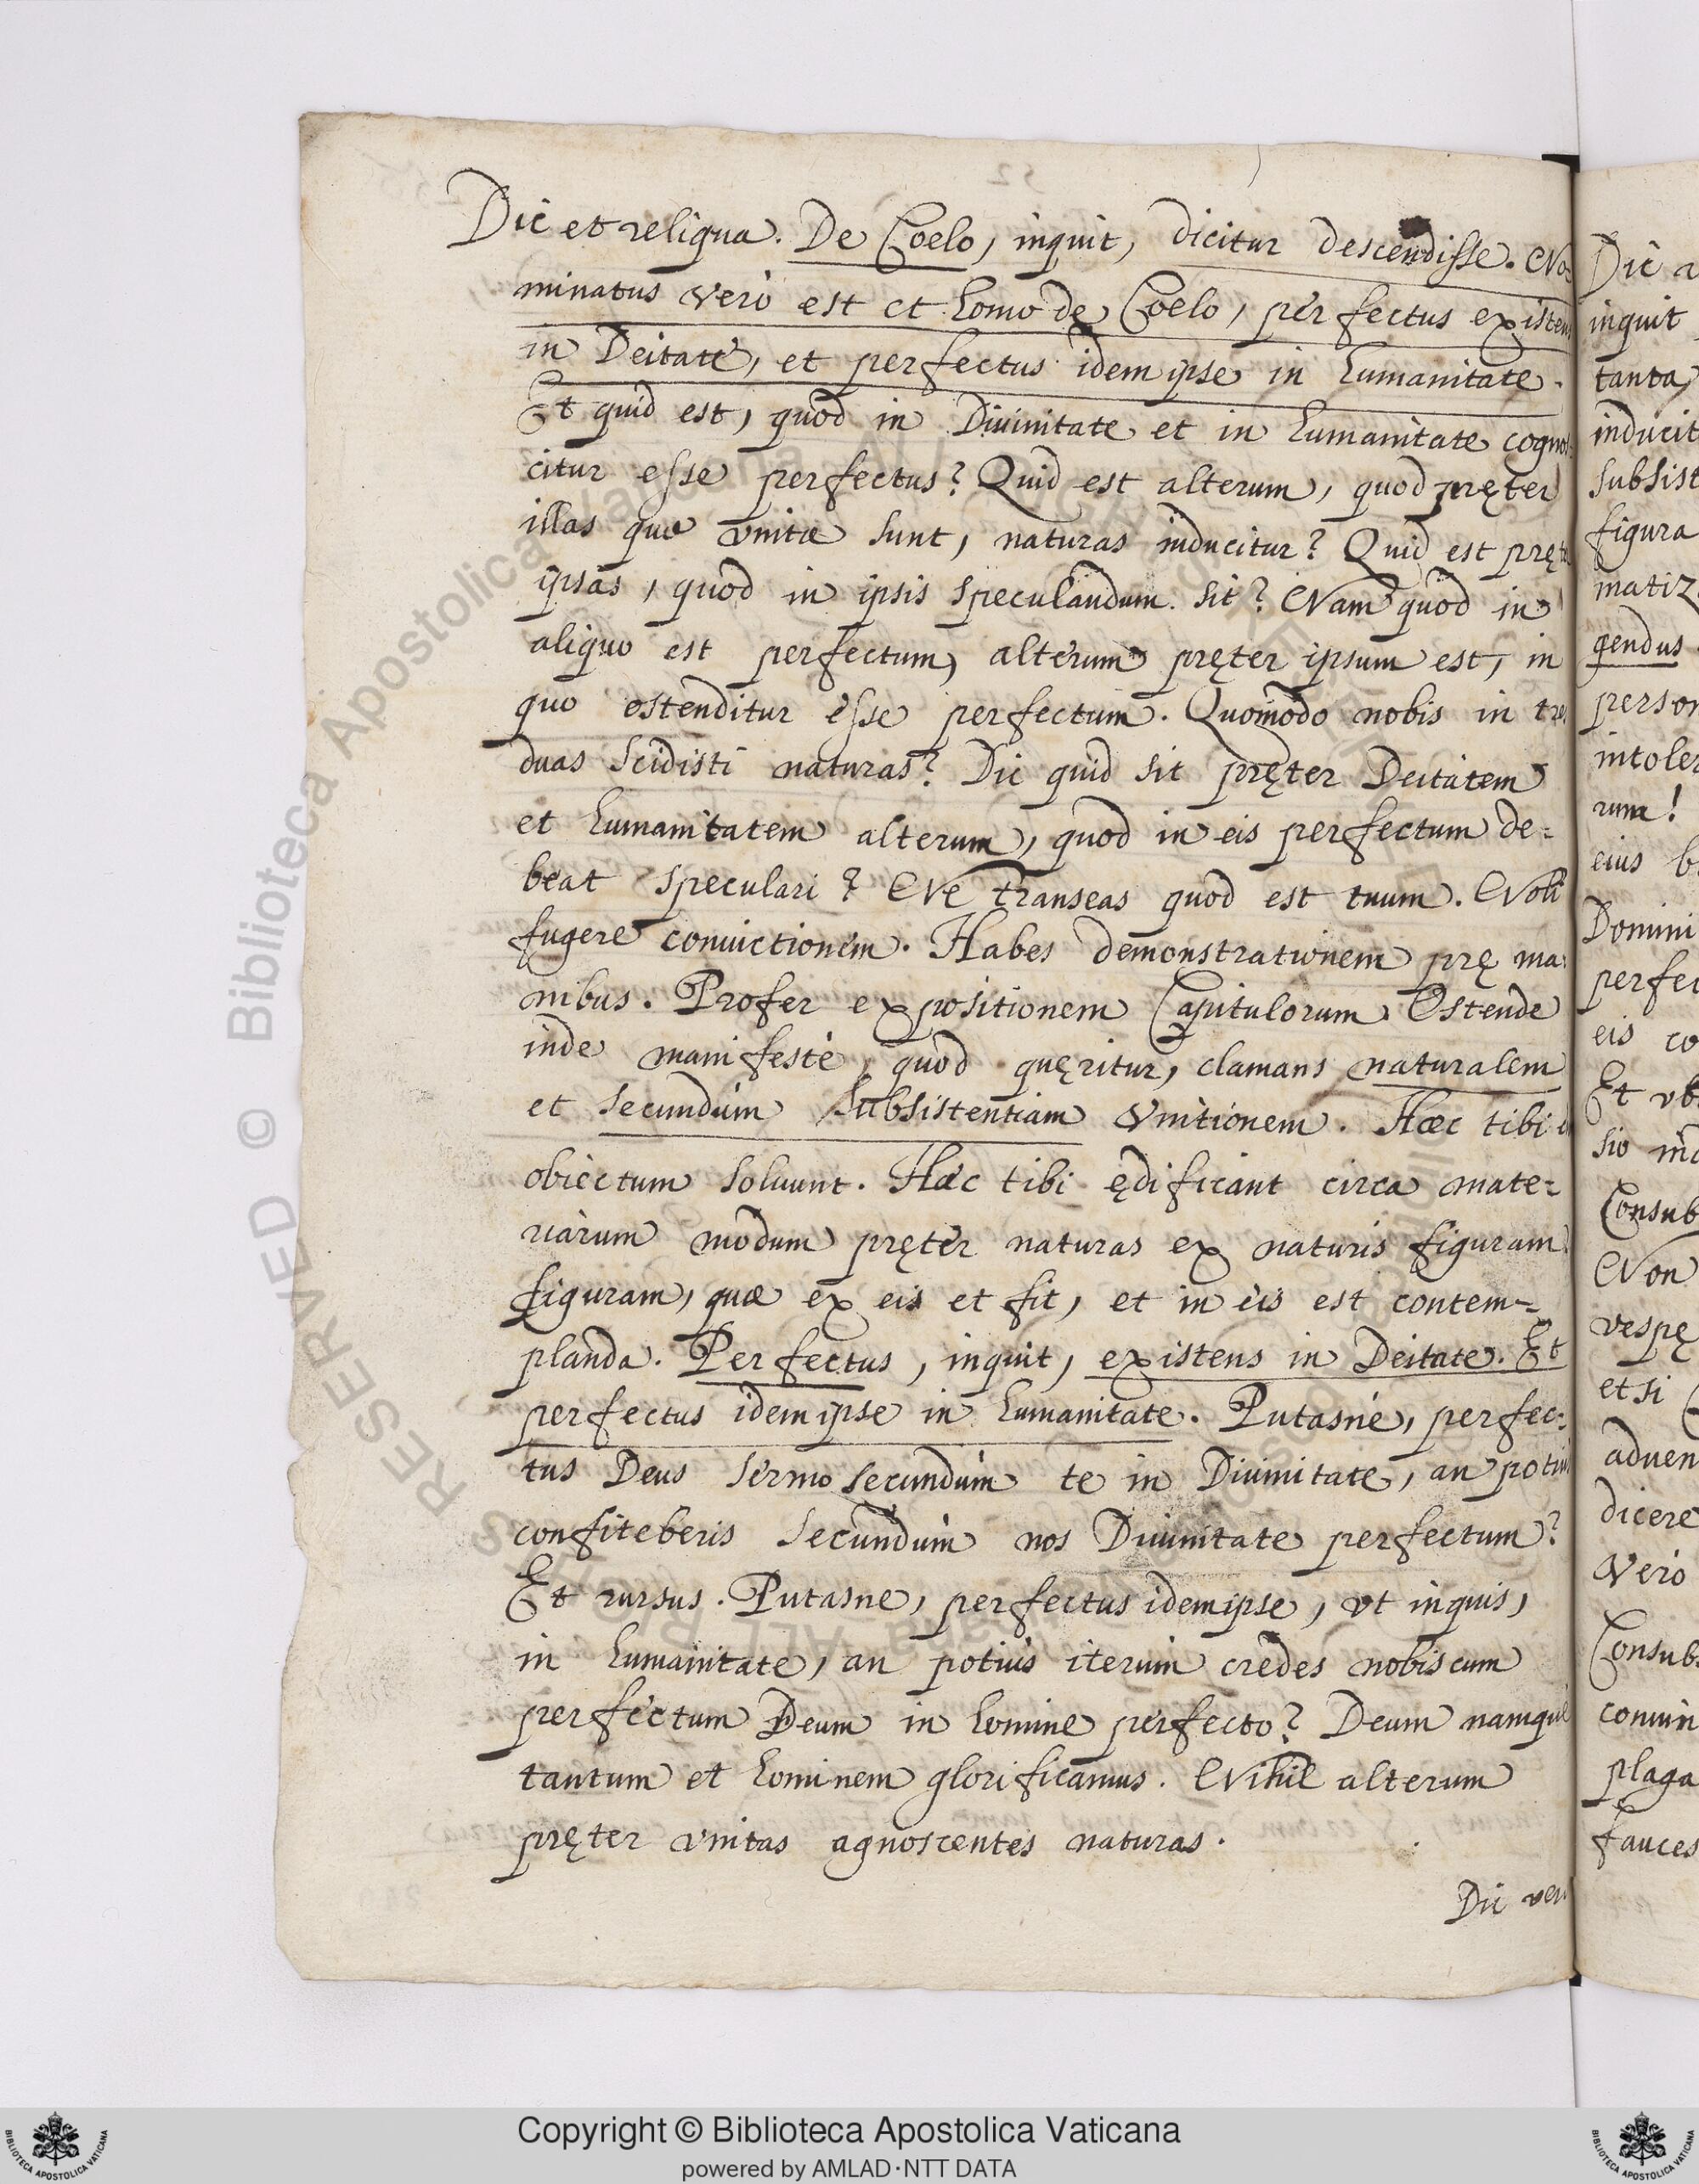 Dic et reliqua. De Coelo, inquit, dicitur descendisse. No=
minatus verò est et homo de Coelo, perfectus existens
in Deitate, et perfectus idem ipse in humanitate.
Et quid est, quod in Diuinitate et in humanitate cognos=
citur esse perfectus? Quid est alterum, quod pręter
illas quæ vnitæ sunt, naturas inducitur? Quid est pręter
ipsas, quod in ipsis speculandum sit? Nam quod in
aliquo est perfectum, alterum pręter ipsum est, in
quo ostenditur esse perfectum. Quomodo nobis in tres
duas scidisti naturas? Dic quid sit pręter Deitatem
et humanitatem alterum, quod in eis perfectum de=
beat speculari? Ne transeas quod est tuum. Noli
fugere conuictionem. Habes demonstrationem prę ma=
nibus. Profer expositionem Capitulorum. Ostende
inde manifestè, quod quęritur, clamans naturalem
et secundùm subsistentiam vnitionem. Hæc tibi
obiectum soluunt. Hæc tibi ędificant circa mate=
riarum modum pręter naturas ex naturis figuram
figuram, quæ ex eis et fit, et in eis est contem=
planda. Perfectus, inquit, existens in Deitate. Et
perfectus idem ipse in humanitate. Putasne, perfec=
tus Deus sermo secundùm te in Diuinitate, an potius
confiteberis secundùm nos Diuinitate perfectum?
Et rursus. Putasne, perfectus idem ipse, vt inquis,
in humanitate, an potiùs iterùm credes nobiscum
perfectum Deum in homine perfecto? Deum namque
tantum et hominem glorificamus. Nihil alterum
pręter vnitas agnoscentes naturas.
Dic
Dic a
inquit
tanta,
inducit
subsist
figura
matiz
gendus.
person
intoler
rum!
eius b
Domini
perfec
eis co
Et vb
sio
Consub
Non
vespę
et si
aduen
dicere
Verò
Consub
conuin
plaga
fauces
© Biblioteca Apostolica Vaticana
ALL RIGHTS RESERVED
Copyright © Biblioteca Apostolica Vaticana
powered by AMLAD·NTT DATA
BIBLIOTECA APOSTOLICA VATICANA
BIBLIOTECA APOSTOLICA VATICANA